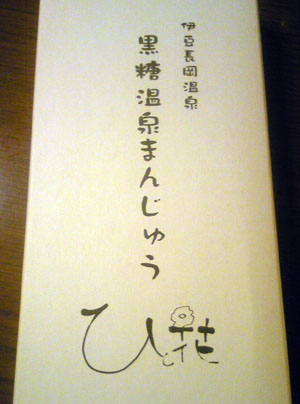 伊豆長岡温泉
黒糖温泉まんじゅう
ひと花